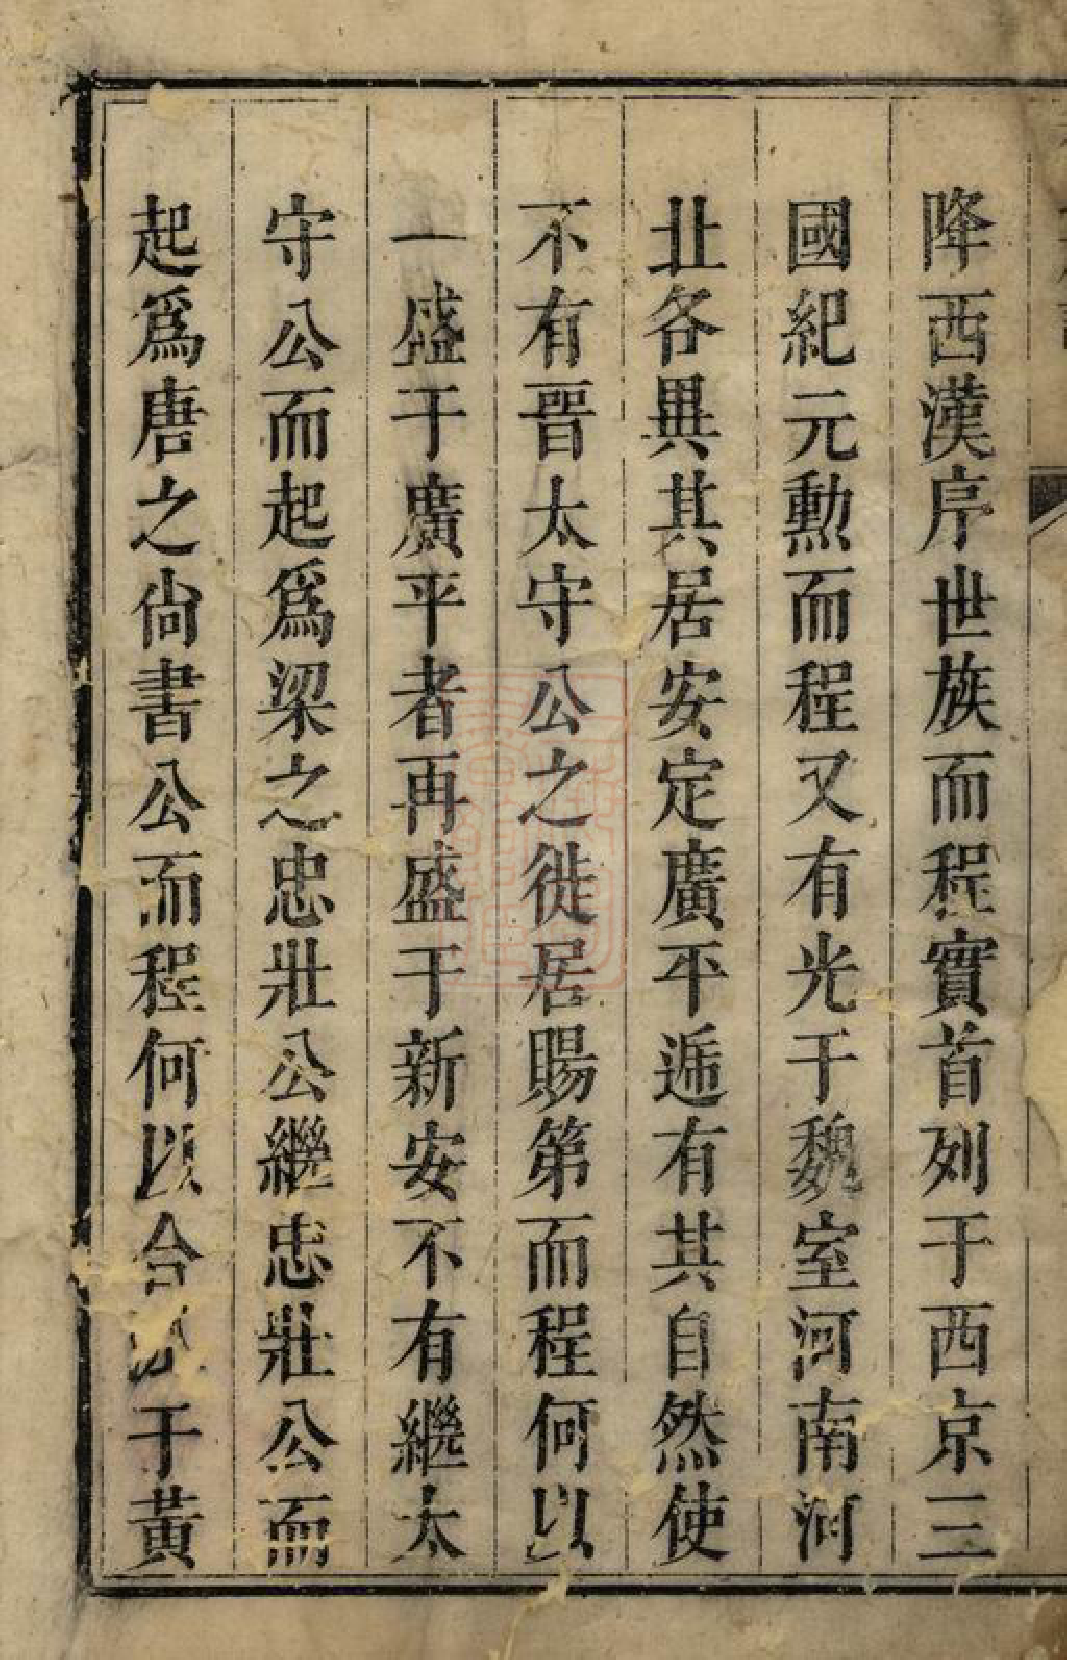 降西漢序世族而程實首列于西京三
國紀元勲而程又有光于魏室河南河
北各異其居安定廣平遞有其自然使
不有晋太守公之徙居賜第而程何以
一盛于廣平者再盛于新安不有繼太
守公而起爲梁之忠壯公繼忠壯公而
起爲唐之尙書公而程何以合於于黃